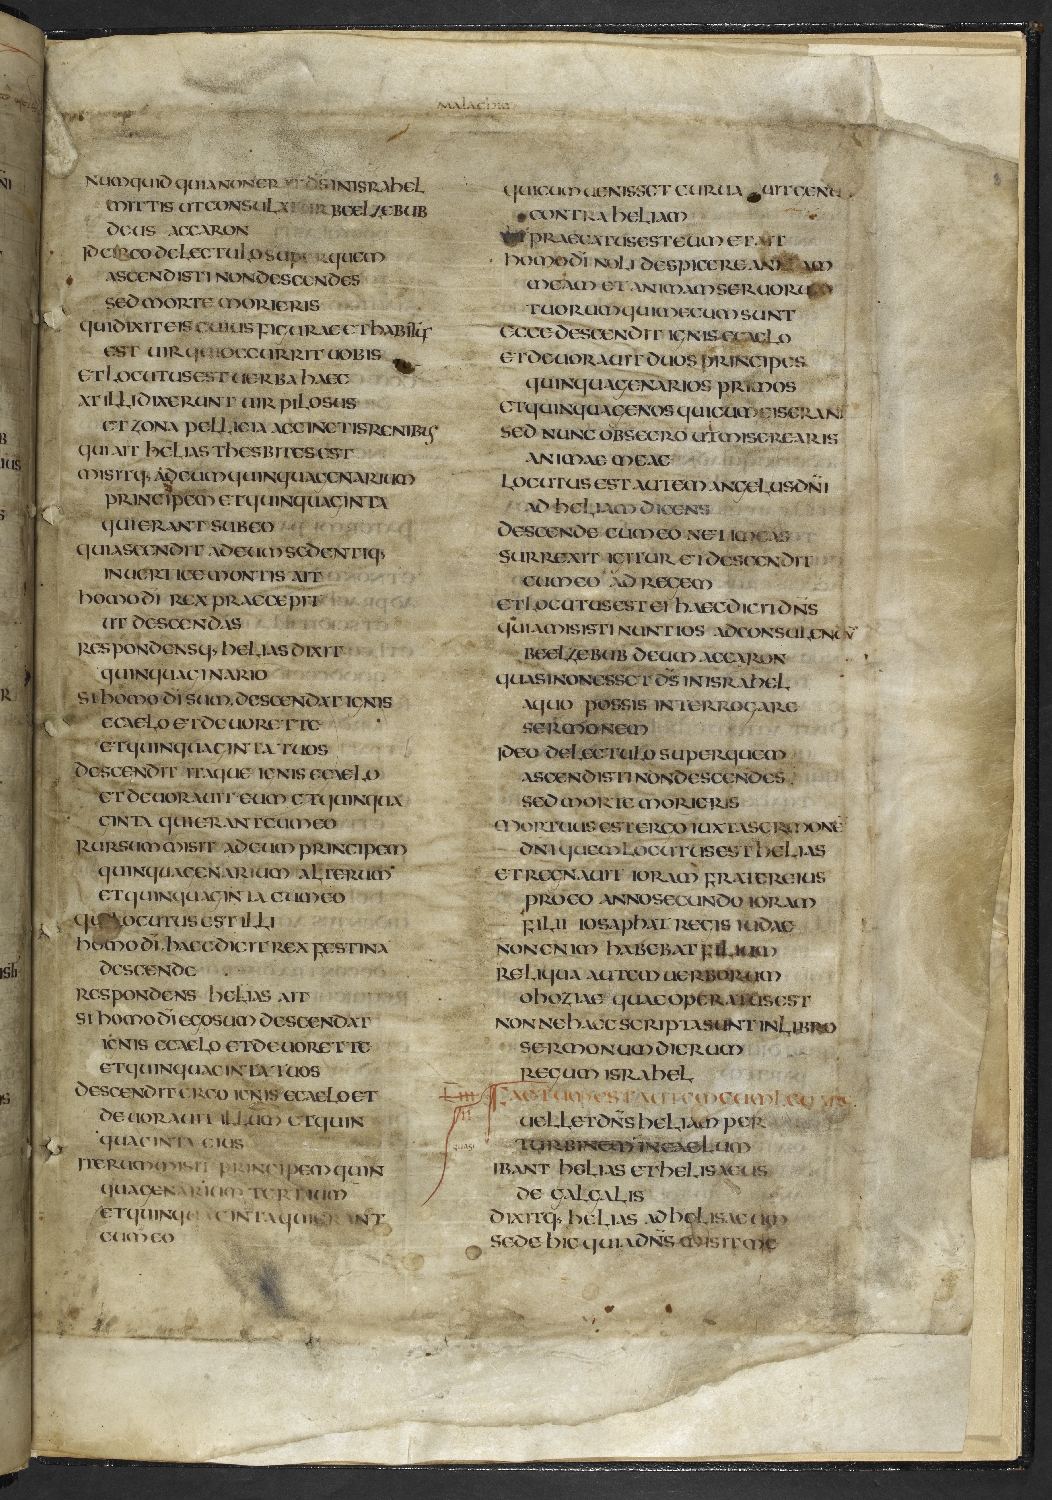 malachia
NUMQUID QUIA NON ERAT D̄S IN ISRAHEL
MITTIS UT CONSULATUR BEELZEBUB
DEUS ACCARON
IDCIRCO DE LECTULO SUPER QUEM
ASCENDISTI NON DESCENDES
SED MORTE MORIERIS
QUI DIXIT EIS CUIUS FIGURAE ET HABITUS
EST UIR QUI OCCURRIT UOBIS
ET LOCUTUS EST UERBA HAEC
AT ILLI DIXERUNT UIR PILOSUS
ET ZONA PELLICIA ACCINCTIS RENIBUS
QUI AIT HELIAS THESBITES EST
MISITQ; AD EUM QUINQUAGENARIUM
PRINCIPEM ET QUINQUAGINTA
QUI ERANT SUB EO
QUI ASCENDIT AD EUM SEDENTIQ;
IN UERTICE MONTIS AIT
HOMO D̄I REX PRAECEPIT
UT DESCENDAS
RESPONDENSQ; HELIAS DIXIT
QUINQUAGINARIO
SI HOMO D̄I SUM DESCENDAT IGNIS
E CAELO ET DEUORET TE
ET QUINQUAGINTA TUOS
DESCENDIT ITAQUE IGNIS E CAELO
ET DEUORAUIT EUM ET QUINQUA
GINTA QUI ERANT CUM EO
RURSUM MISIT AD EUM PRINCIPEM
QUINQUAGENARIUM ALTERUM
ET QUINQUAGINTA CUM EO
QUI LOCUTUS EST ILLI
HOMO D̄I HAEC DICIT REX FESTINA
DESCENDE
RESPONDENS HELIAS AIT
SI HOMO D̄I EGO SUM DESCENDAT
IGNIS E CAELO ET DEUORET TE
ET QUINQUAGINTA TUOS
DESCENDIT ERGO IGNIS E CAELO ET
DEUORAUIT ILLUM ET QUIN
QUAGINTA EIUS
ITERUM MISIT PRINCIPEM QUIN
QUAGENARIUM TERTIUM
ET QUINQUAGINTA QUI ERANT
CUM EO
QUI CUM UENISSET CURUAUIT GENU
CONTRA HELIAM
PRAECATUS EST EUM ET AIT
HOMO D̄I NOLI DESPICERE ANIMAM
MEAM ET ANIMAM SERUORUM
TUORUM QUI MECUM SUNT
ECCE DESCENDIT IGNIS E CAELO
ET DEUORAUIT DUOS PRINCIPES
QUINQUAGENARIOS PRIMOS
ET QUINQUAGENOS QUI CUM EIS ERANT
SED NUNC OBSECRO UT MISEREARIS
ANIMAE MEAE
LOCUTUS EST AUTEM ANGELUS DN̄I
AD HELIAM DICENS
DESCENDE CUM EO NE TIMEAS
SURREXIT IGITUR ET DESCENDIT
CUM EO AD REGEM
ET LOCUTUS EST EI HAEC DICIT DN̄S
QUIA MISISTI NUNTIOS AD CONSULENDŪ
BEELZEBUB DEUM ACCARON
QUASI NON ESSET D̄S IN ISRAHEL
A QUO POSSIS INTERROGARE
SERMONEM
IDEO DE LECTULO SUPER QUEM
ASCENDISTI NON DESCENDES
SED MORTE MORIERIS
MORTUUS EST ERGO IUXTA SERMONĒ
DN̄I QUEM LOCUTUS EST HELIAS
ET REGNAUIT IORAM FRATER EIUS
PRO EO ANNO SECUNDO IORAM
FILII IOSAPHAT REGIS IUDAE
NON ENIM HABEBAT FILIUM
RELIQUA AUTEM UERBORUM
OHOZIAE QUAE OPERATUS EST
NONNE HAEC SCRIPTA SUNT IN LIBRO
SERMONUM DIERUM
REGUM ISRAHEL
FACTUM EST AUTEM CUM LEUARE
UELLET DN̄S HELIAM PER
quasi TURBINEM IN CAELUM
IBANT HELIAS ET HELISAEUS
DE GALGALIS
DIXITQ; HELIAS AD HELISAEUM
SEDE HIC QUIA DN̄S MISIT ME